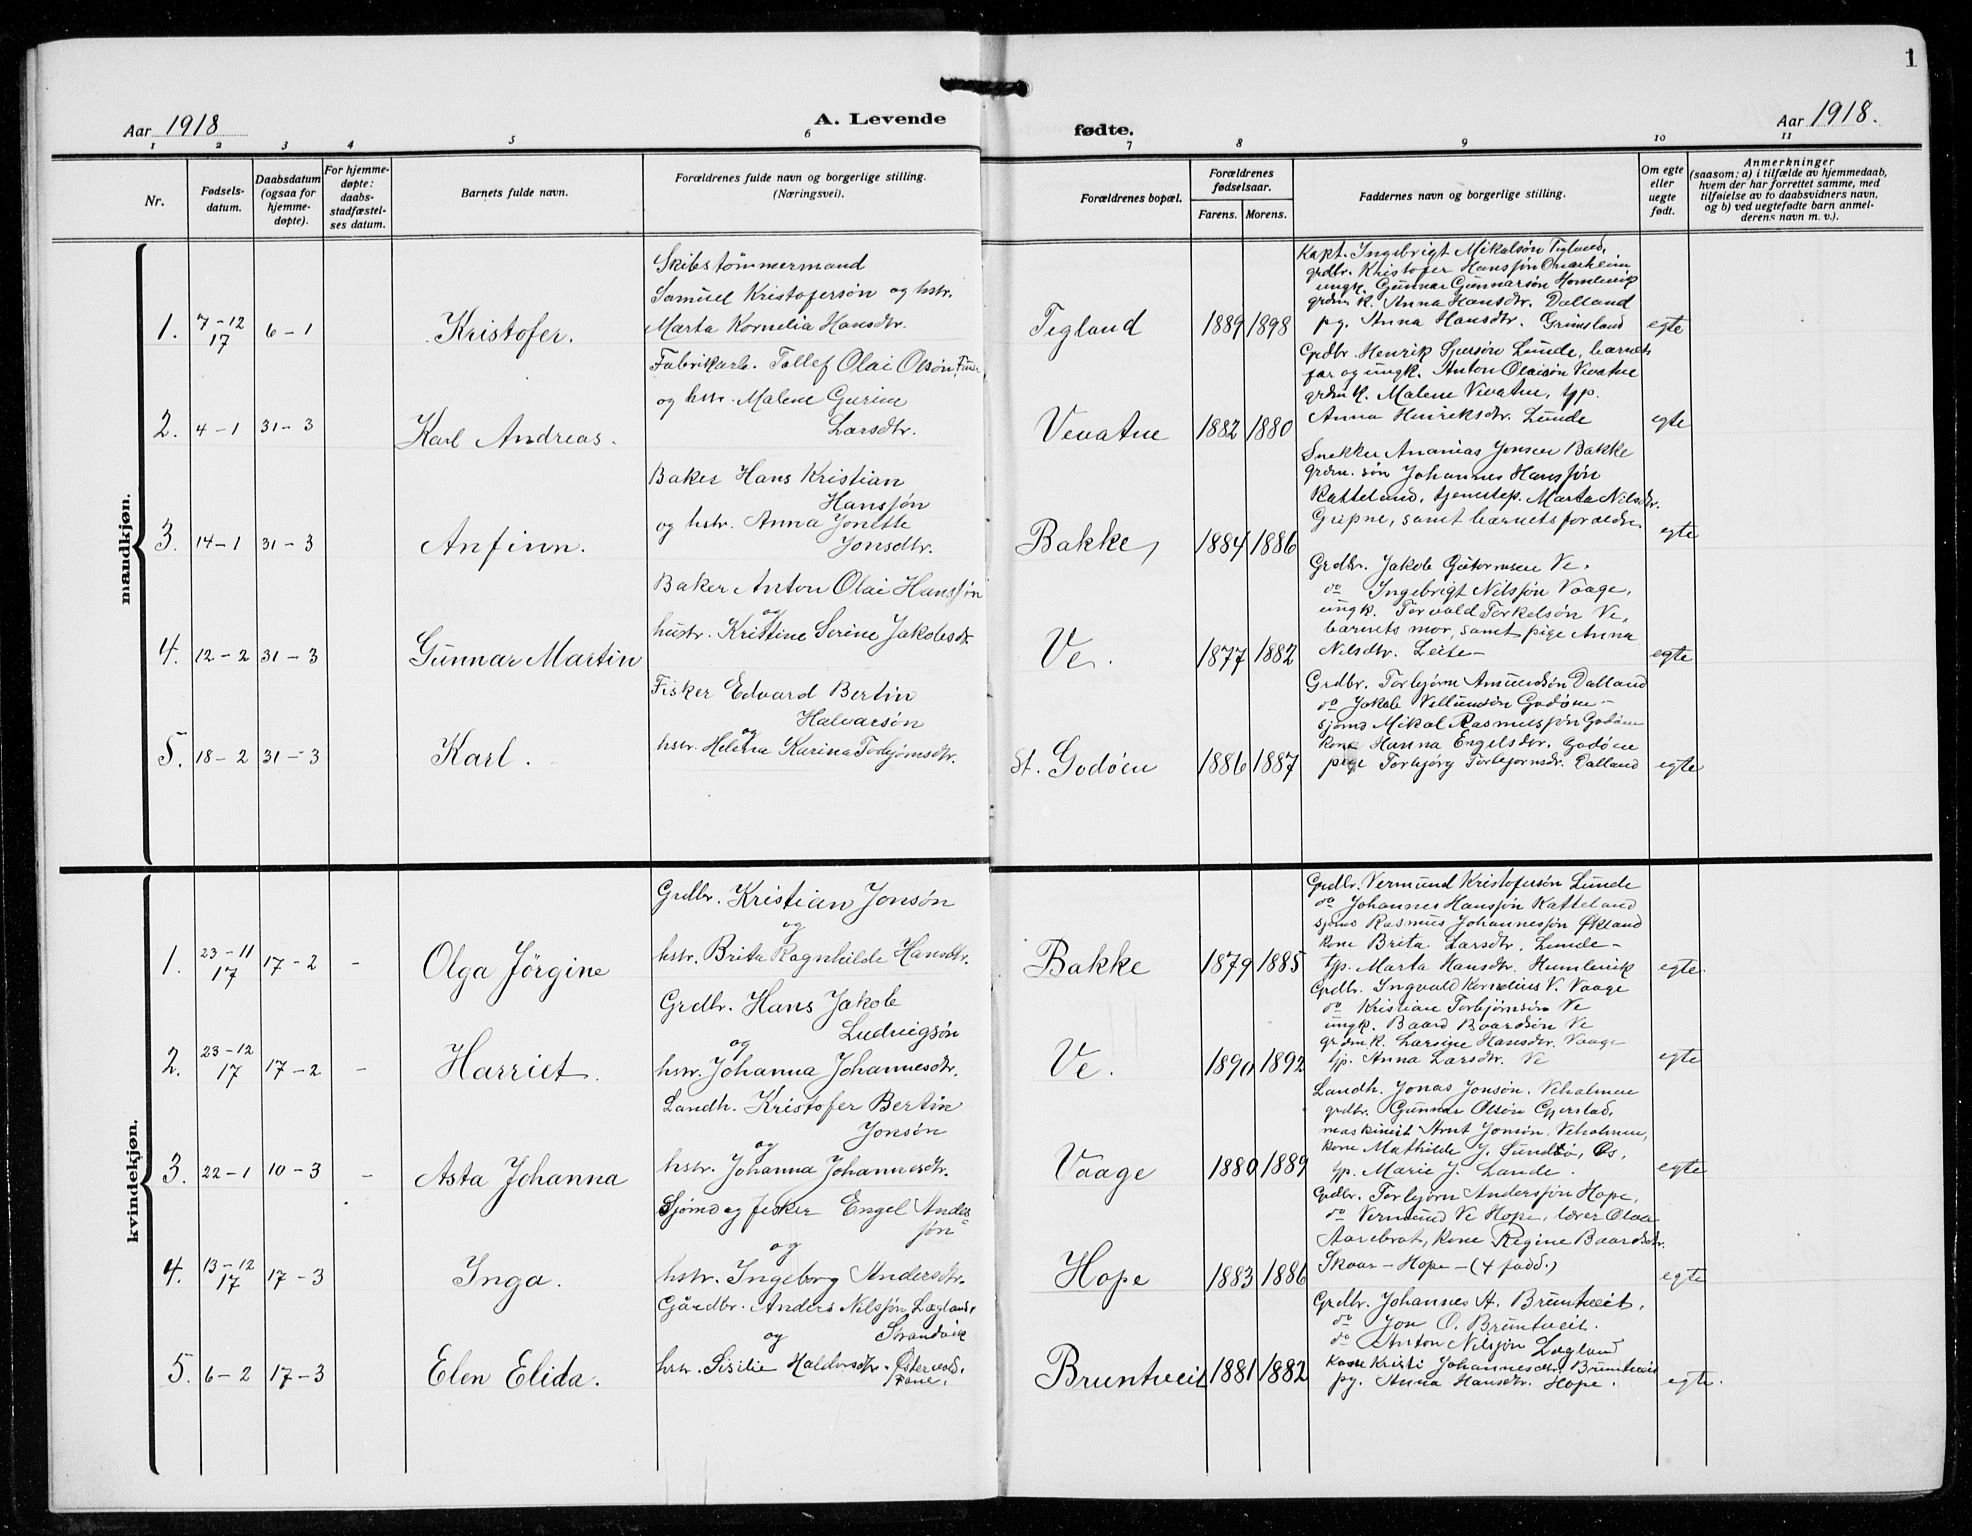 1
Aar 1918
A. Levende
fødte.
Aar 1918.
1 2 3 4 5 6 7 8 9 10 11
Nr.
Fødsels-
datum.
Daabsdatum
(ogsaa for
hjemme-
døpte).
For hjemme-
døpte:
daabs-
stadfæstel-
ses datum.
Barnets fulde navn.
Forældrenes fulde navn og borgerlige stilling.
(Næringsvei).
Forældrenes bopæl.
Forældrenes
fødselsaar.
Farens. Morens.
Faddernes navn og borgerlige stilling.
Om egte
eller
uegte
født.
Anmerkninger
(saasom: a) i tilfælde av hjemmedaab,
hvem der har forrettet samme, med
tilføielse av to daabsvidners navn,
og b) ved uegtefødte barn anmel-
derens navn m. v.).
mandkjøn.
1. 7-12
17
6-1
Kristofer.
Skibstømmermand
Samuel Kristofersøn og hstr.
Marta Kornelia Hansdtr.
Tegland 1889 1898
Kapt. Ingebrigt Mikalsøn Tegland,
grdbr. Kristofer Hansjøn
ungk. Gunnar Gunnarsøn Homlevik
grdm k. Anna Hansdtr. Dalland
pg. Anna Hansdtr. Grimsland
egte
2. 4-1 31-3
Karl Andreas.
Fabrikarb. Tollef Olai Olsøn
og hstr. Malene Gurine
Larsdtr.
Vevatne 1882 1880
Grdbr. Henrik Lunde, barnets
far og ungk. Anton Olaisøn Vevatne
grdm k. Malene Vevatne, tjp.
Anna Henriksdtr. Lunde
egte
3. 14-1 31-3
Anfinn.
Baker Hans Kristian
Hansjøn
og hstr. Anna Jonette
Jonsdtr.
Bakke, 1884 1886
Snekker Ananias Jonsen Bakke
grdm. søn Johannes Hansjøn
Katteland, tjenestep. Marta Nilsdtr.
Gripne, samt barnets forældre
egte
4. 12-2 31-3
Gunnar Martin
Baker Anton Olai Hansjøn
og
hustr. Kristine Serine Jakobsdtr
Ve. 1877 1882
Grdbr. Jakob Gutormsen Ve.
do Ingebrigt Nilsjøn Vaage,
ungk. Torvald Torkelsøn Ve,
barnets mor, samt pige Anna
Nilsdtr. Leite-
egte
5. 18-2 31-3
Karl.
Fisker Edvard Bertin
Halvarsøn
og
hstr. Helena Karina Torbjørnsdtr.
St. Godøen 1886 1887
Grdbr. Torbjørn Amundsøn Dalland
do Jakob Villumsøn Godøen-
sjømd Mikal Rasmusjøn Godøen
kone Hanna Engelsdtr. Godøen
pige Torbjørg Torbjørnsdr. Dalland
egte
kvindekjøn.
1. 23-11
17
17-2 -
Olga Jörgine
Grdbr. Kristian Jonsøn
og
hstr. Brita Ragnhilde Hansdtr.
Bakke 1879 1885
Grdbr. Vermund Kristofersøn Lunde
do Johannes Hansjøn Katteland
sjømd Rasmus Johannesjøn Økland
kone Brita Larsdtr. Lunde-
tjp. Marta Hansdtr. Humlevik
egte.
2. 23-12
17
17-2 -
Harriet.
Grdbr. Hans Jakob
Ludvigsøn
og
hstr. Johanna Johannesdtr.
Ve. 1890 1892
Grdbr. Ingvald Kornelius V. Vaage
do Kristian Torbjørnsøn Ve
ungk. Baard Baardsøn Ve
grdm k. Larsine Hansdtr. Vaage
tjp. Anna Larsdtr. Ve
egte
3. 22-1 10-3 -
Asta Johanna
Landh. Kristofer Bertin
Jonsøn
og
hstr. Johanna Johannesdtr.
Vaage 1880 1889
Landh. Jonas Jonsøn. Veholmen
grdbr. Gunnar Olsøn Gjerstad,
maskinist Arnt Jonsøn, Veholmen,
kone Mathilde J. Sundbø, Os,
tjp. Marie J. Lande.
egte
4. 13-12
17
17-3
Inga.
Sjømd og fisker Engel Anders
jøn
og
hstr. Ingeborg Andersdtr.
Hope 1883 1886
Grdbr. Torbjørn Andersjøn Hope,
do Vermund Ve Hope, lærer Olai
Aarebrot, kone Regine Baardsdtr.
Skaar - Hope - (4 fadd.)
egte
5. 6-2 17-3
Elen Elida.
Gårdbr. Anders Nilsjøn Lægland,
og Strandvik
hstr. Sisilie Haldorsdtr. Østervold,
Fane.
Bruntveit 1881 1882
Grdbr. Johannes A. Bruntveit.
do Jon O. Bruntveit.
do Anton Nilsjøn Lægland
Kone Kristi Johannesdtr. Bruntveit
pg. Anna Hansdtr. Hope.
egte.